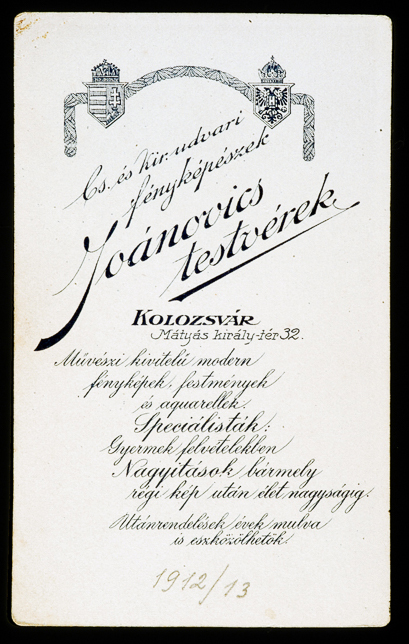 Cs. és Kir. udvari
fényképészek
Joánovics
testvérek
KOLOZSVÁR
Mátyás király-tér 32.
Művészi kivitelű modern
fényképek, festmények
és aquarellek.
Speciálisták:
Gyermek felvételekben
Nagyítások bármely
régi kép után élet nagyságig.
Utánrendelések évek mulva
is eszközölhetők.
1912/13